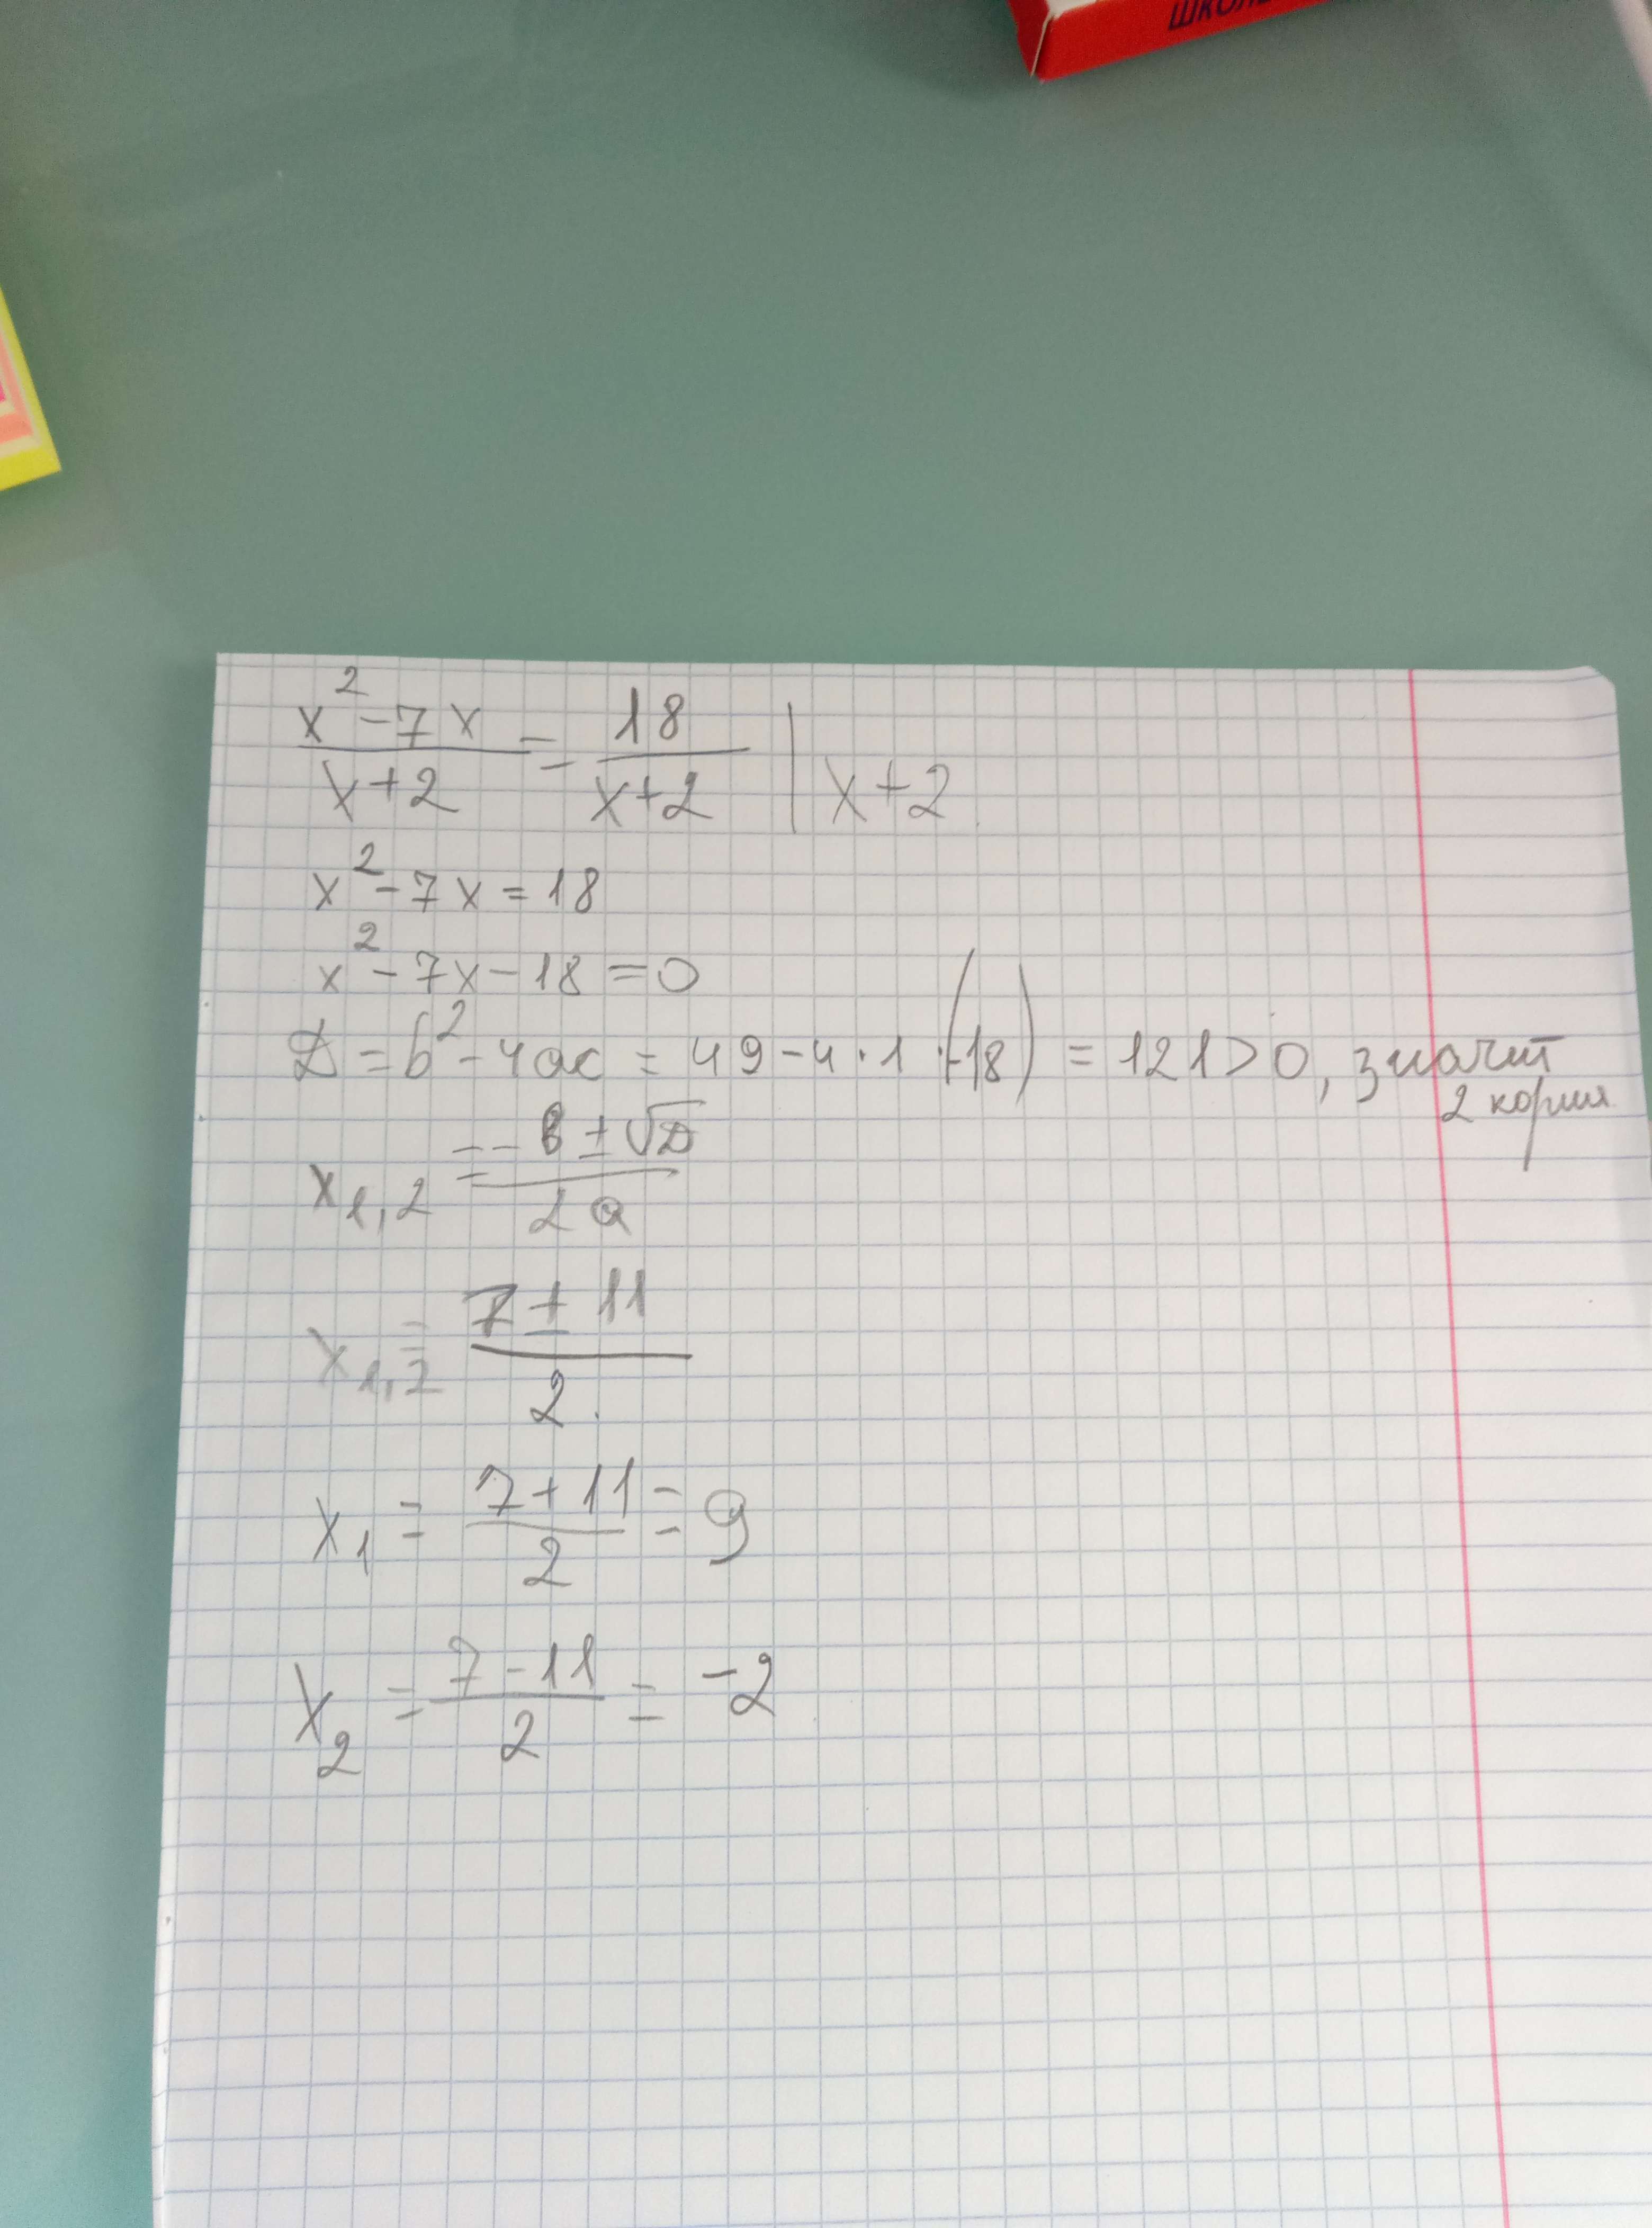 ШКОЛ
x² - 7x / x+2 = 18 / x+2 | x+2
x² - 7x = 18
x² - 7x - 18 = 0
D = b² - 4ac = 49 - 4 · 1 · (-18) = 121 > 0, значит
2 корня
x₁,₂ = -b ± √D / 2a
x₁,₂ = 7 ± 11 / 2
x₁ = 7 + 11 / 2 = 9
x₂ = 7 - 11 / 2 = -2